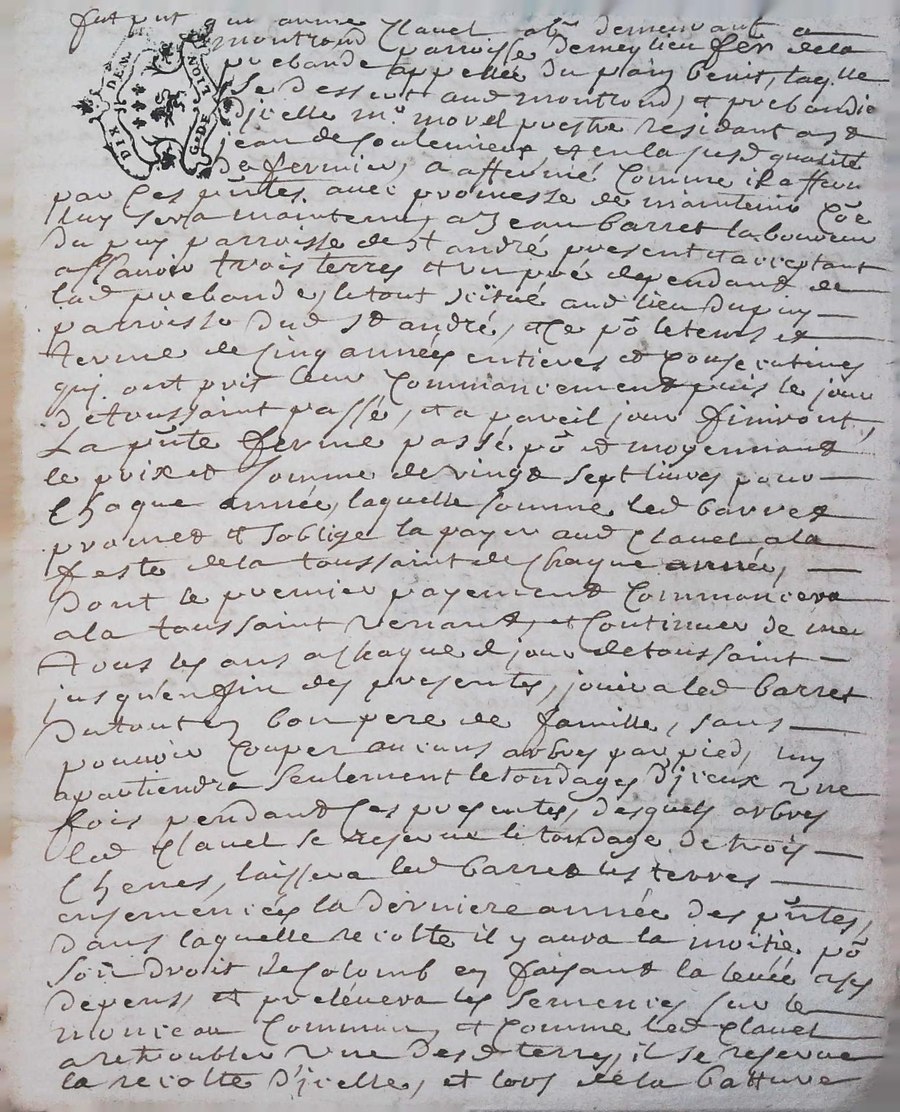 fut pnt sr anne Clavel nore demeurant a
montrond parroisse demeylieu fer dela
prebande appellée Du pain benit, laqlle
Se Dessert aud montrond, et prebandie
D'icelle mre morel prestre residant a st
jean de Soulemieux et en la susd qualité
De fermier, a affermé Comme il afferme
par Ces pntes avec promesse de maintenir Cõe
luy sera maintenu, a Jean barret laboureur
Du puy parroisse de st andré present et acceptant
assavoir trois terres et un pré dependant de
lad prebande, le tout scitué aud lieu Dupuy
parroisse Dud St andré, et Ce põ letems et
terme de Cinq années entieres et Consecutives
qui ont prit leur Commancement puis le jour
De toussaint passé, et a pareil jour finiront,
La pnte ferme passé põ et moyennant
le prix et somme de vingt sept livres pour
Chaque année, laquelle somme led barret
promet et soblige la payer aud Clavel ala
feste dela toussaint de Chaque année,
Dont le premier payement Commancera
ala toussaint venant, et Continuer de mē
tous les ans a Chaque d jour detoussaint
jusqu'en fin des presentes, jouira led barret
Du tout en bon pere de famille, sans
pouvoir Couper aucuns arbres par pied, luy
apartiendra seulement le tondages D'iceux une
fois pendant Ces presentes, desquels arbres
led Clavel se reserve le tondage De trois
Chenes, laissera led barret les terres
ensemencés la derniere année des pntes,
dans laquelle recolte il y aura la moitié põ
Son droit de Colomb en faisant la levée a ses
depens, et prelevera les semences sur le
monceau Commun, et Comme led Clavel
a retroubler une Desd terres, il se reserve
la recolte D'icelle, et lors dela batture
DIX DEN
G DE LION